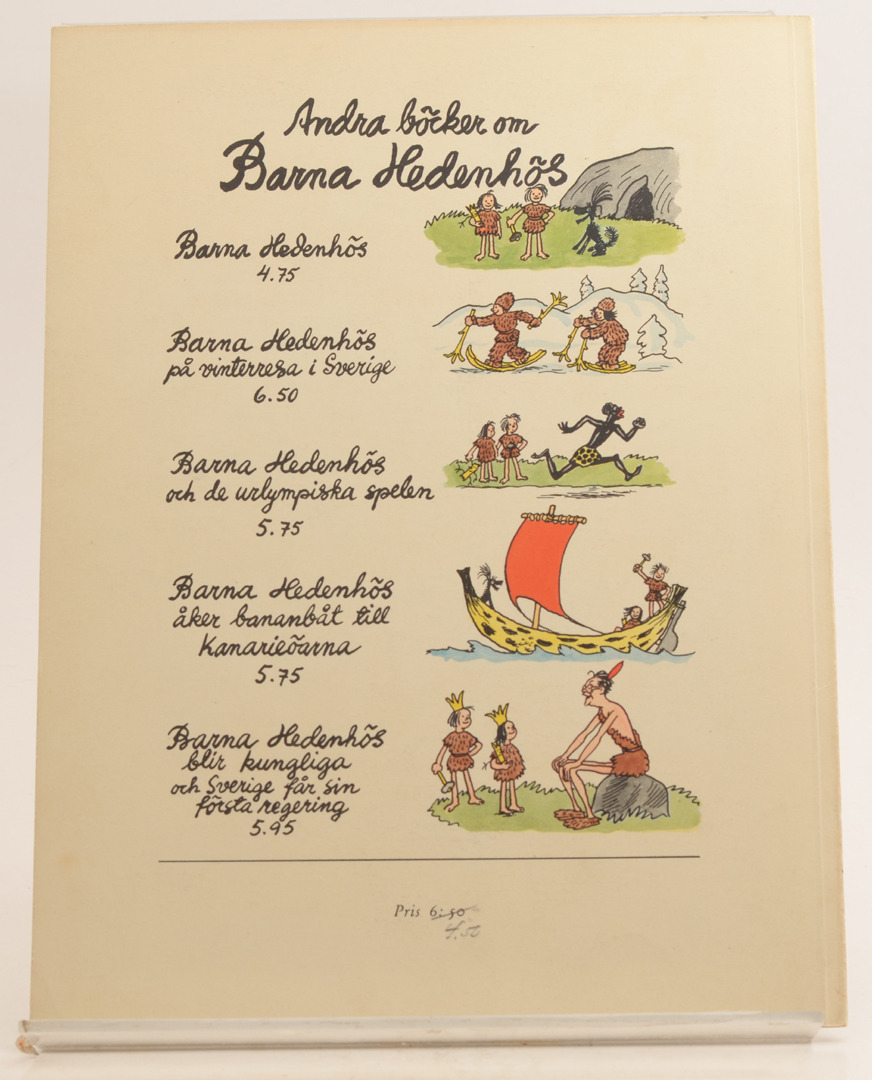 Andra böcker om
Barna Hedenhös
Barna Hedenhös
4.75
Barna Hedenhös
på vinterresa i Sverige
6.50
Barna Hedenhös
och de urlympiska spelen
5.75
Barna Hedenhös
åker bananbåt till
Kanarieöarna
5.75
Barna Hedenhös
blir kungliga
och Sverige får sin
första regering
5.95
Pris 6:50
4.50